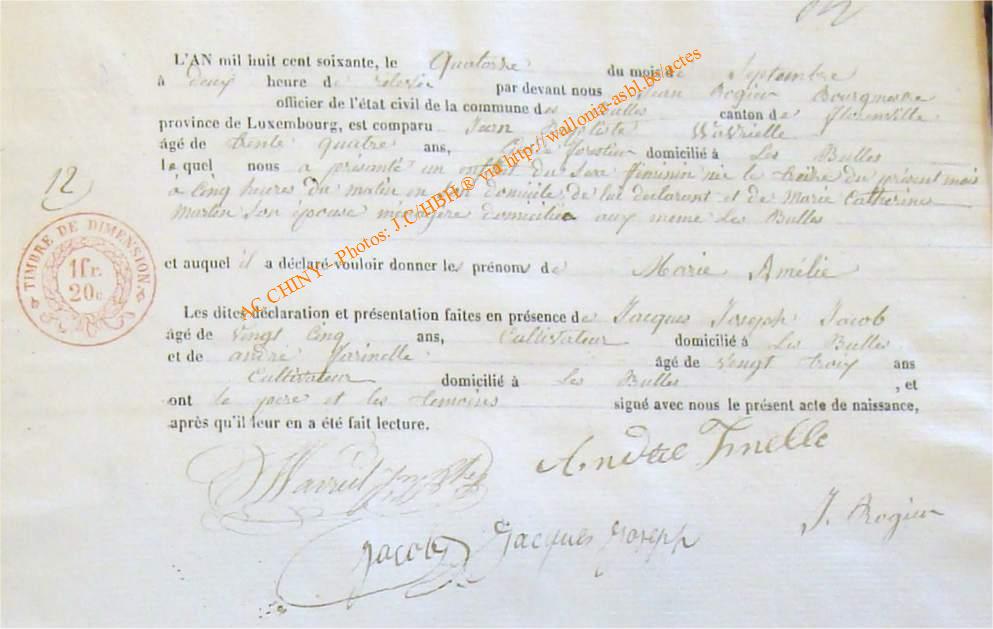 L'AN mil huit cent soixante, le Quatorze du mois de Septembre
à deux heure de relevée par devant nous Jean Rogier Bourgmestre
officier de l'état civil de la commune des Bulles canton de Florenville
province de Luxembourg, est comparu Jean Baptiste Wavrielle
âgé de trente quatre ans, Garde forestier domicilié à Les Bulles
lequel nous a présenté un enfant du sexe féminin née le treize du présent mois
à cinq heures du matin en son domicile de lui déclarant et de Marie Catherine
Martin son épouse ménagère domiciliée aux meme Les Bulles
et auquel il a déclaré vouloir donner les prénoms de Marie Amélie
Les dites déclaration et présentation faites en présence de Jacques Joseph Jacob
âgé de vingt cinq ans, Cultivateur domicilié à Les Bulles
et de andré farinelle âgé de vengt troix ans
Cultivateur domicilié à Les Bulles , et
ont le père et les temoins signé avec nous le présent acte de naissance,
après qu'il leur en a été fait lecture.
12
TIMBRE DE DIMENSION
1fr.
20c
AC CHINY - Photos: J.C/HBH ® via http://wallonia-asbl.be/actes
André
J. Rogier
Jacob Jacques Joseph